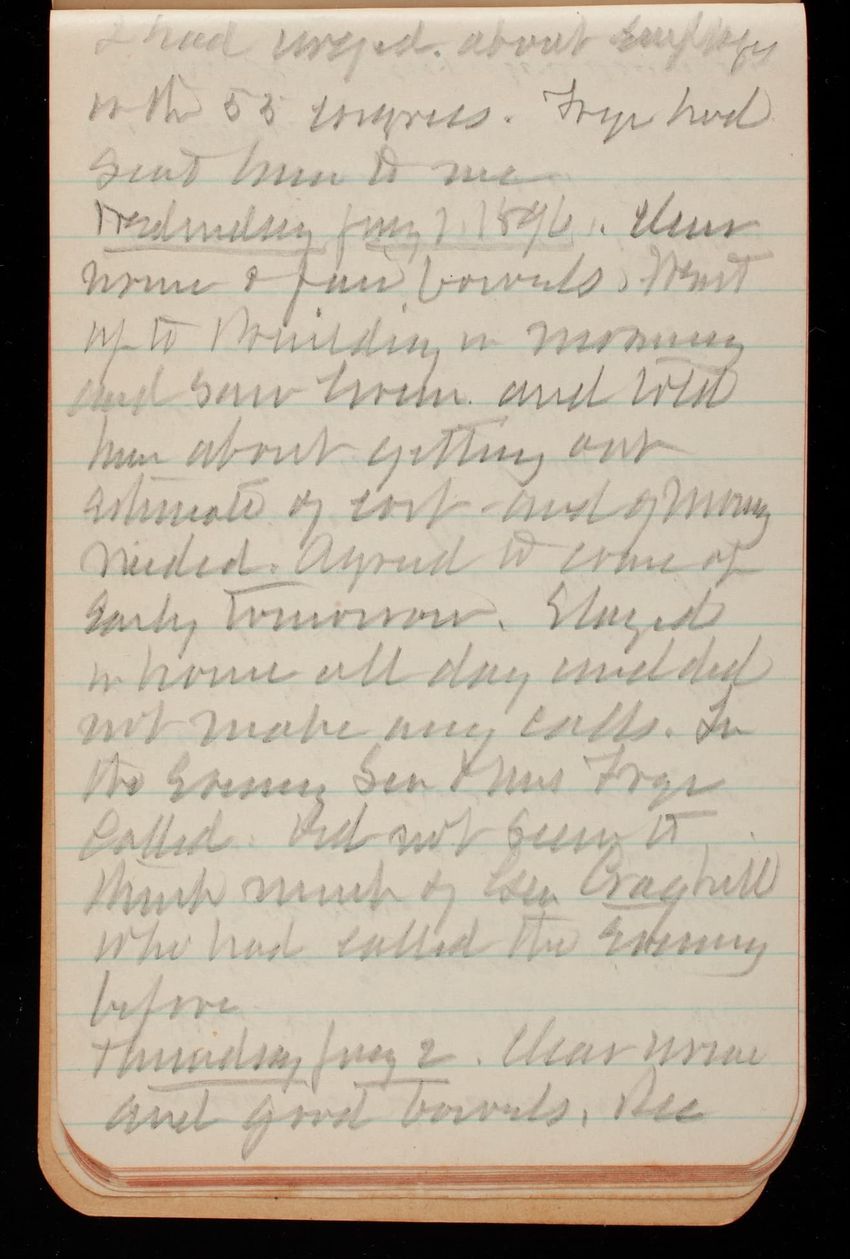 I had urged. about employes
in the 55 congress. Frye had
sent him to me
Wednesday Jany 1, 1896. Clear
urine & fair bowels. Went
up to Building in morning
and saw Green. and told
him about getting out
estimate of cost - and of money
needed. Agreed to come up
early tomorrow. Stayed
in house all day and did
not make any calls. In
the evening Sen & Mrs Frye
called. Did not seem to
think much of Gen Craghill
who had called the evening
before
Thursday Jany 2. Clear urine
and good bowels. Rec